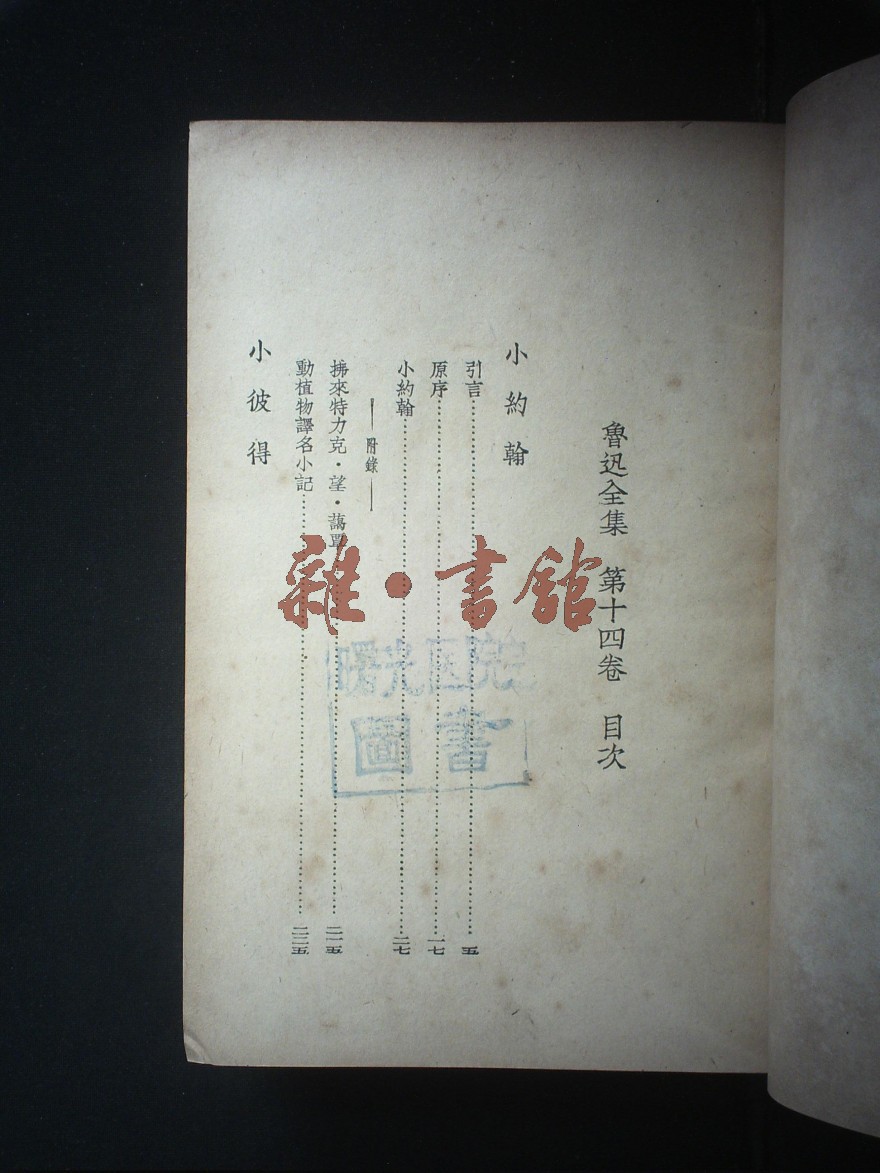 魯迅全集　第十四卷　目次
小約翰
引言……五
原序……一七
小約翰……二七
——附錄——
拂來特力克·望·藹覃……二一五
動植物譯名小記……二二五
小彼得
雜·書館
医院
圖書